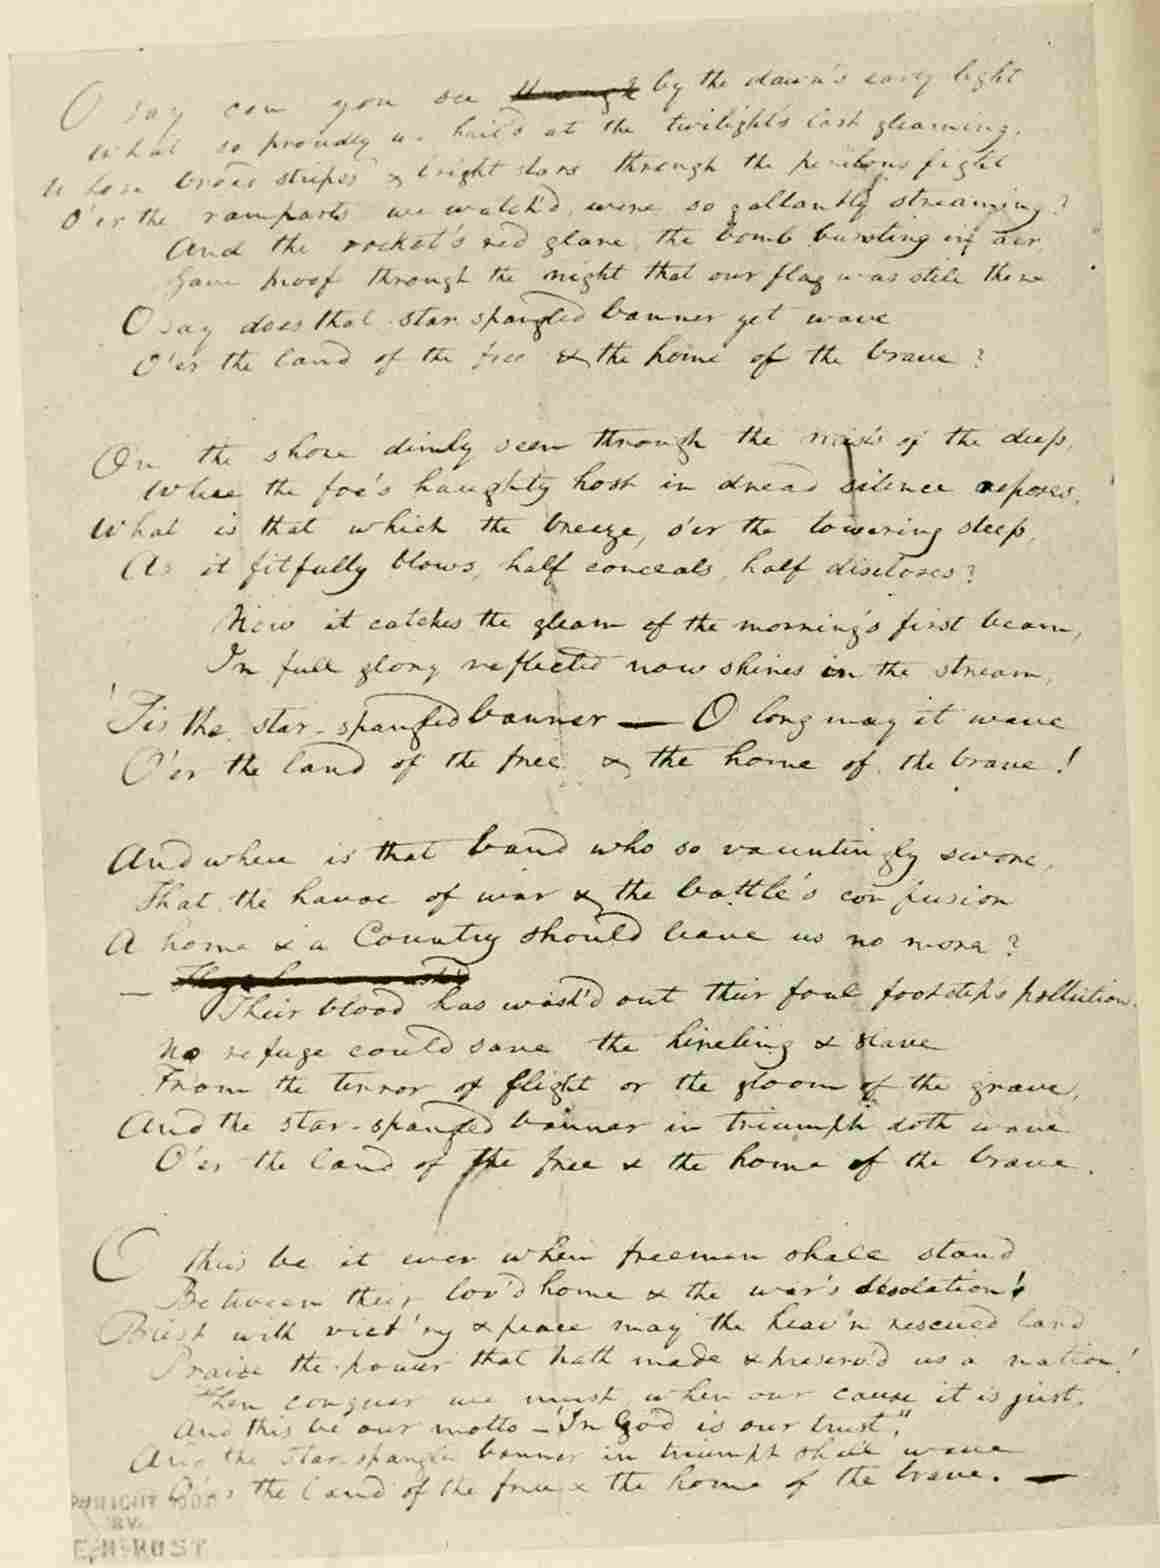 O say can you see ~~through~~ by the dawn's early light
What so proudly we hail'd at the twilight's last gleaming,
Whose broad stripes & bright stars through the perilous fight
O'er the ramparts we watch'd, were so gallantly streaming?
And the rocket's red glare, the bomb bursting in air,
Gave proof through the night that our flag was still there
O say does that star spangled banner yet wave
O'er the land of the free & the home of the brave?
On the shore dimly seen through the mists of the deep,
Where the foe's haughty host in dread silence reposes,
What is that which the breeze, o'er the towering steep,
As it fitfully blows, half conceals, half discloses?
Now it catches the gleam of the morning's first beam,
In full glory reflected now shines in the stream,
'Tis the star-spangled banner — O long may it wave
O'er the land of the free & the home of the brave!
And where is that band who so vauntingly swore,
That the havoc of war & the battle's confusion
A home & a Country should leave us no more?
— Their blood has wash'd out their foul footstep's pollution.
No refuge could save the hireling & slave
From the terror of flight or the gloom of the grave,
And the star-spangled banner in triumph doth wave
O'er the land of the free & the home of the brave.
O thus be it ever when freemen shall stand
Between their lov'd home & the war's desolation!
Blest with vict'ry & peace may the heav'n rescued land
Praise the power that hath made & preserv'd us a nation!
Then conquer we must, when our cause it is just,
And this be our motto — "In God is our trust,"
And the star-spangled banner in triumph shall wave
O'er the land of the free & the home of the brave. —
BY